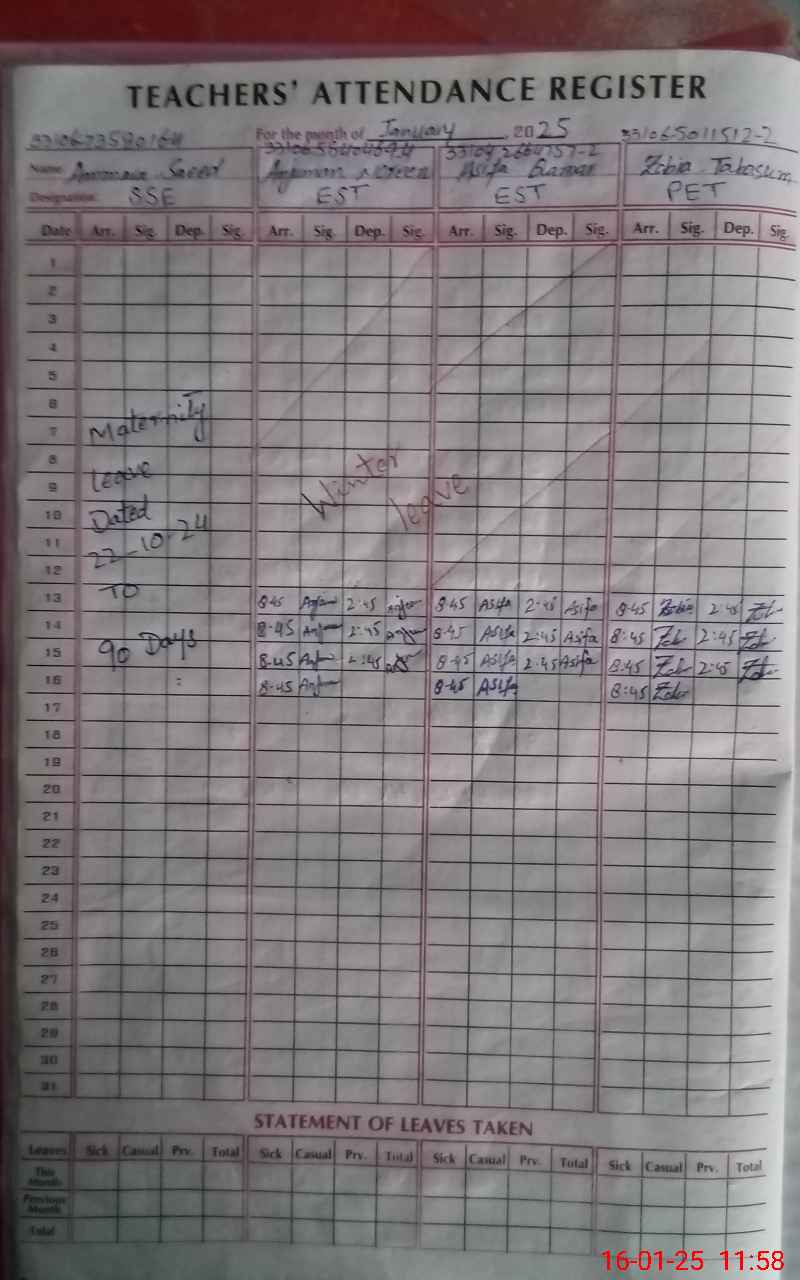 TEACHERS' ATTENDANCE REGISTER
For the month of January, 2025
33106-5011512-2
Name Saeed Anjuman Noreen Asifa Zobia Tabasum
Designation SSE EST EST PET
Date Arr. Sig. Dep. Sig. Arr. Sig. Dep. Sig. Arr. Sig. Dep. Sig. Arr. Sig. Dep. Sig.
1
2
3
4
5
6
7 Maternity
8
9 Leave Winter leave
10 Dated
11 22-10-24
12
13 TO 8-45 Anjum 2:45 Anjum 8-45 Asifa 2:45 Asifa 8-45 Zobia 2:45
14 8-45 2:45 8-45 Asifa 2:45 Asifa 8:45 2:45
15 90 Days 8-45 2:45 8-45 Asifa 2:45 Asifa 8:45 2:45
16 8-45 8-45 Asifa 8:45
17
18
19
20
21
22
23
24
25
26
27
28
29
30
31
STATEMENT OF LEAVES TAKEN
Leaves Sick Casual Prv. Total Sick Casual Prv. Total Sick Casual Prv. Total Sick Casual Prv. Total
This Month
Previous Month
Total
16-01-25 11:58